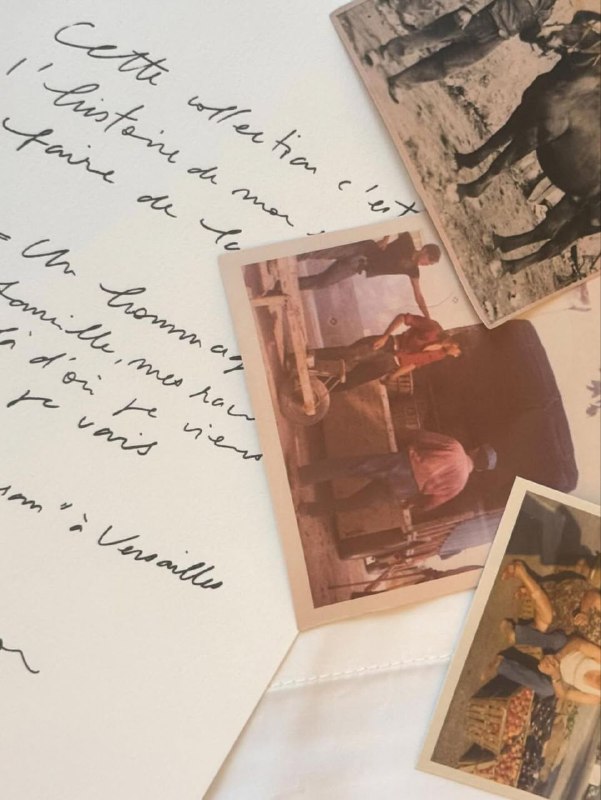 Cette collection c'est
l'histoire de mon
faire de la
= Un hommag
famille, mes rac
là d'où je viens
je vais
" à Versailles